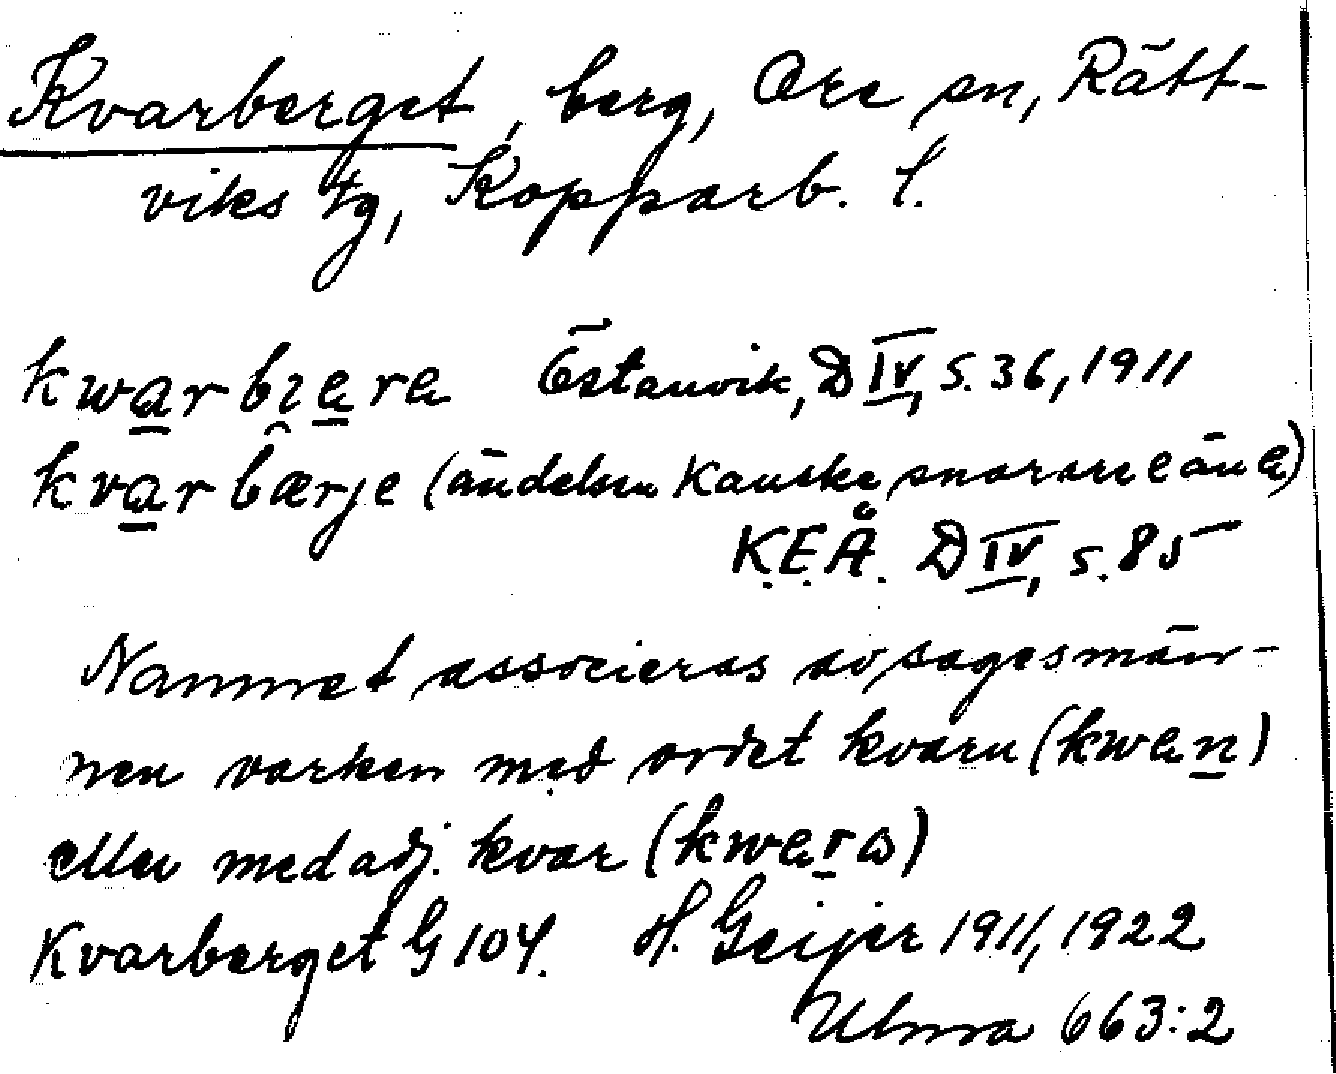 Kvarberget, berg, Ore sn, Rätt-
viks tg, Kopparb. l.
kwarbi̯ere Östanvik, D IV, s. 36, 1911
kvarbærje (ändelsen kanske snarare e än a)
K.E.Å. D IV, s. 85
Namnet associeras av sagesmän-
nen varken med ordet kvarn (kwen)
eller med adj. kvar (kwera)
Kvarberget G 104. H. Geijer 1911, 1922
Ulma 663:2